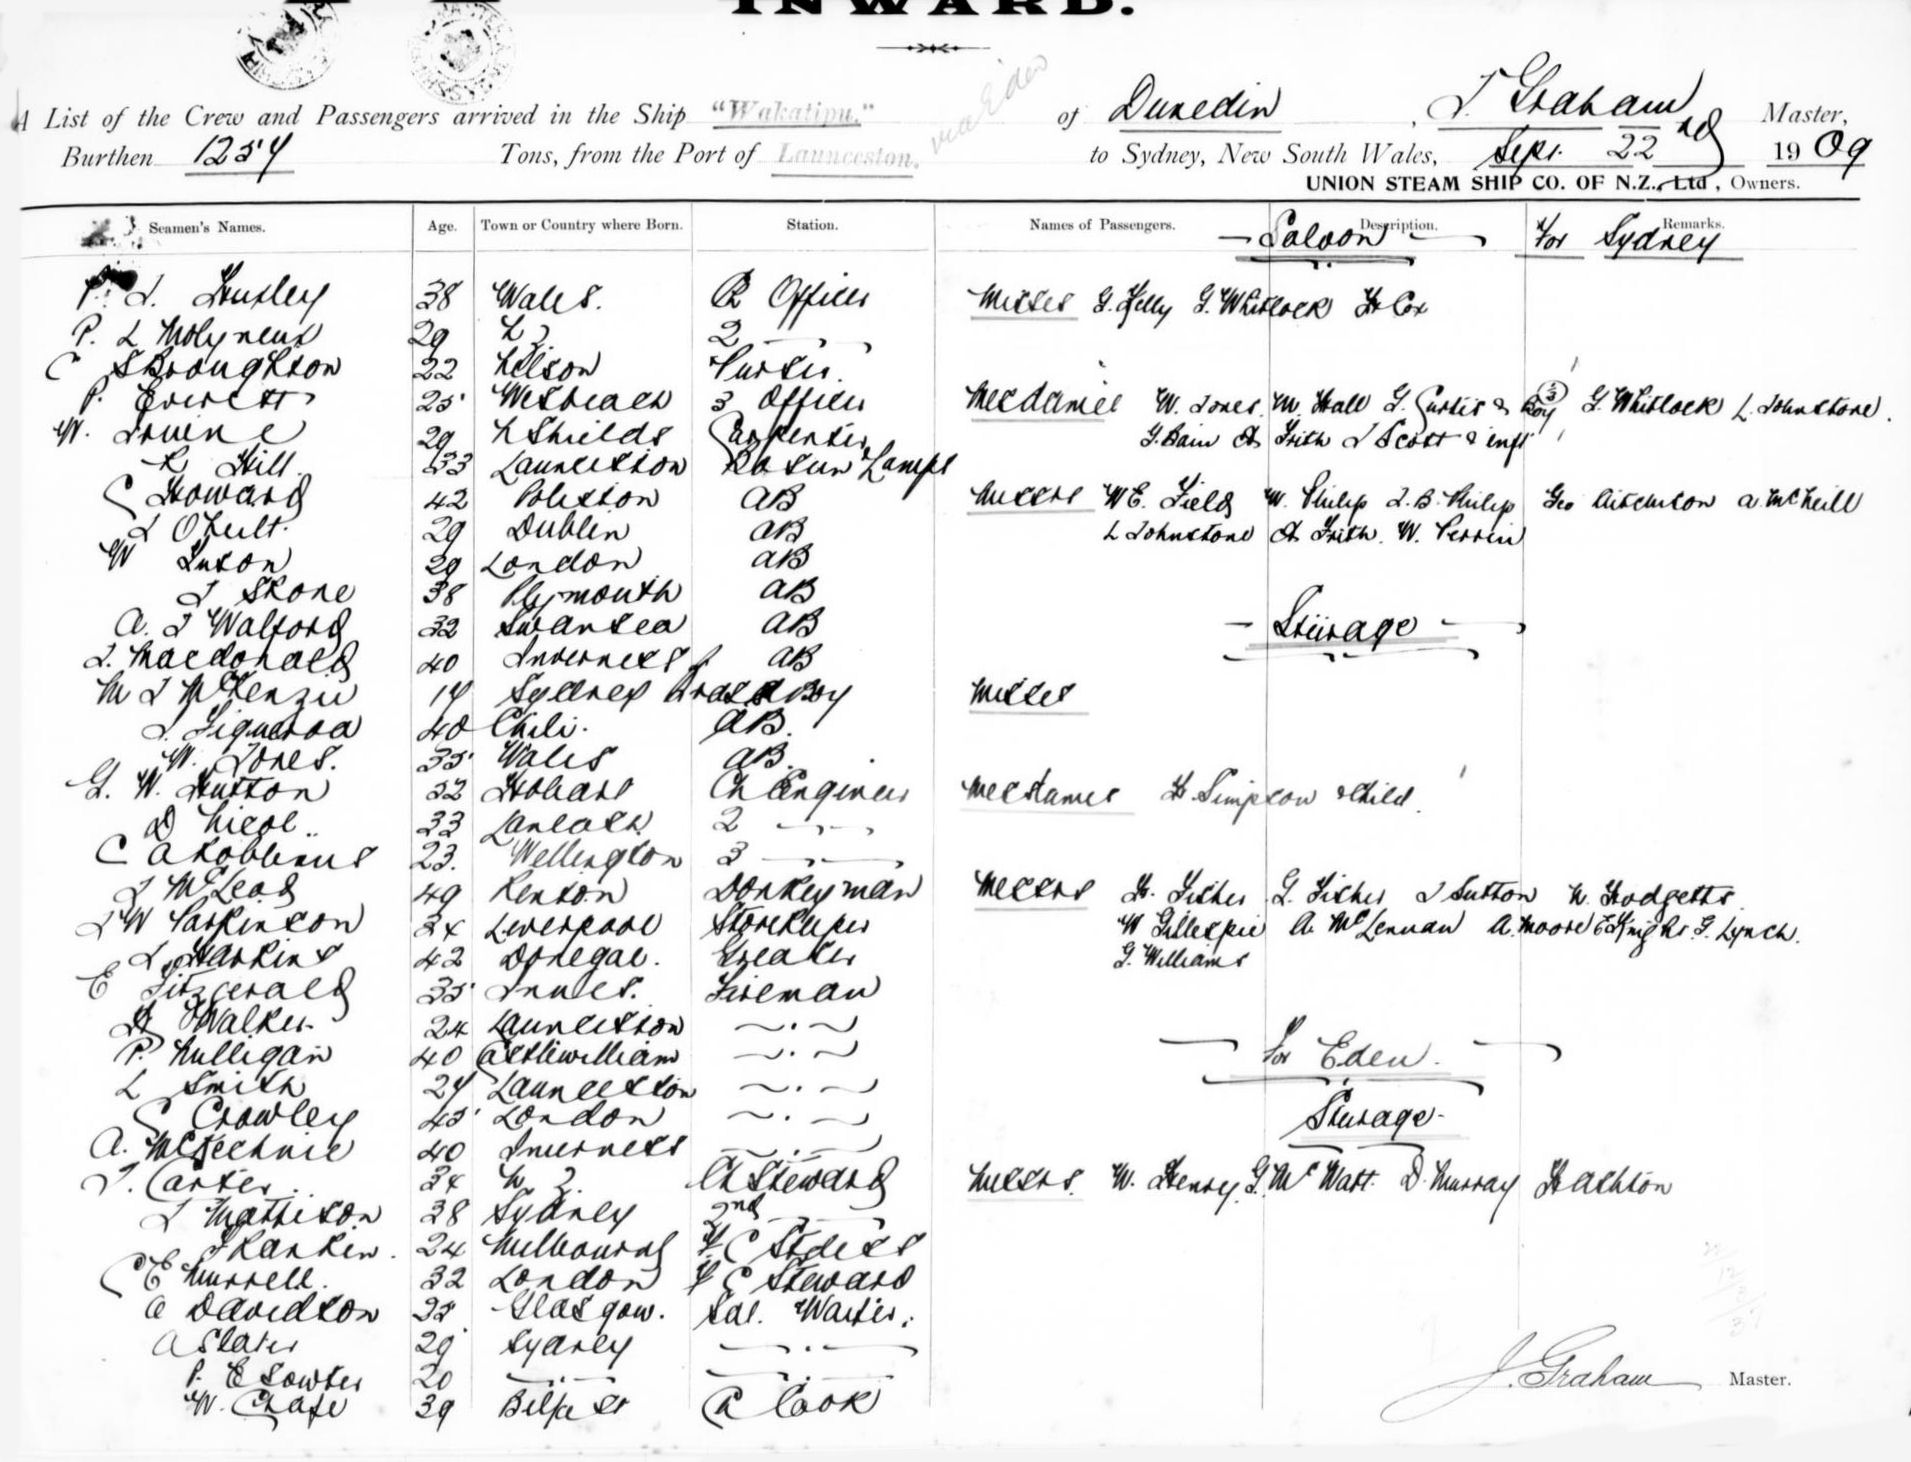 INWARD.
via Eden
A List of the Crew and Passengers arrived in the Ship "Wakatipu." of Dunedin, J Graham Master,
Burthen 1257 Tons, from the Port of Launceston. to Sydney, New South Wales, Sept. 22nd 1909
UNION STEAM SHIP CO. OF N.Z., Ltd, Owners.
Seamen's Names. Age. Town or Country where Born. Station. Names of Passengers. Description. Remarks.
Saloon For Sydney
38 Wales. Ch Officer Misses G. Kelly G. Whitlock H Cox
P. L Molyneux 29 N Z 2
C S Broughton 22 Nelson Purser.
P. Everett 25 Wisbeach 3 Officer Mesdames W. Jones, M. Hall G. Curtis & Boy G. Whitlock L. Johnstone.
W. Irvine 29 N Shields Carpenter G. Bain A Frith J Scott & inft
R Hill. 33 Launceston Bosun & Lamps
C Howard 42 AB Messrs W E. Field W. Philip J. B. Philip Geo Aitchison A McNeill
J O'Neill. 29 Dublin AB L Johnstone A Frith. W. Perrin
W Luxon 29 London AB
J Skone 38 Plymouth AB
A. J Walford 32 Swansea AB Steerage
J. Macdonald 40 Inverness AB
M J McKenzie 17 Sydney Boy Misses
J. Figueroa 40 Chili. AB.
W. Jones. 35 Wales AB.
G. W. Hutton 32 Hobart Ch Engineer Mesdames H. Simpson & Child.
D Nicol 33 2
C A Robbins 23. Wellington 3
J McLeod 49 Renton Donkeyman Messrs H. Fisher G. Fisher J Sutton W. Hodgetts
J W Parkinson 34 Liverpool Storekeeper W Gillespie A. McLennan A. Moore E Knight. G. Lynch.
J Harkins 42 Donegal. Greaser G. Williams
E Fitzgerald 35 Fireman
H Walker 24 Launceston
P. Mulligan 40 Castlewilliam For Eden.
L Smith 27 Launceston
C Crowley 45 London Steerage
A. McKechnie 40 Inverness
J. Carter. 34 N Z. Ch Steward Messrs. W. Henry, G. McWatt. D. Murray H Ashton
J Mattison 38 Sydney 2nd
J Rankin. 24 Melbourne F C Stdess
C E Murrell. 32 London F C Steward
A Davidson 35 Glasgow. Sal. Waiter.
A Slater 29 Sydney
P. E Sowter 20
W. Chafe 39 Belfast Ch Cook
J. Graham Master.